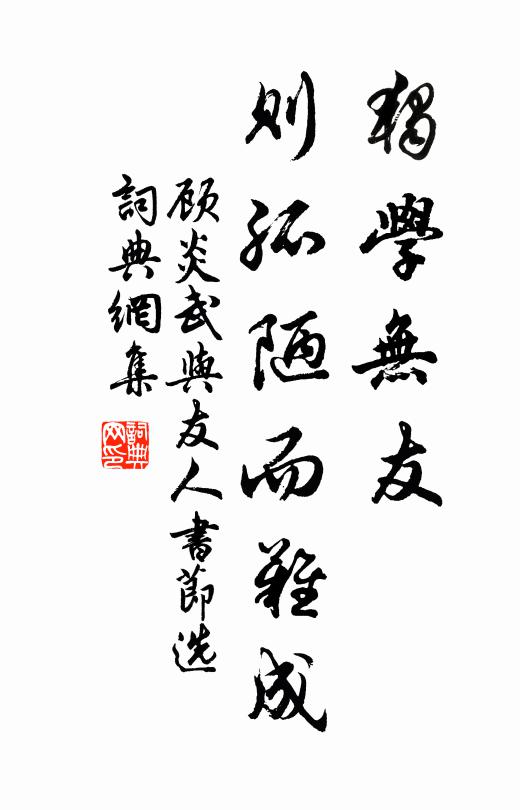 獨學無友
則孤陋而難成
顾炎武與友人書節选
詞典網集
詞典網印